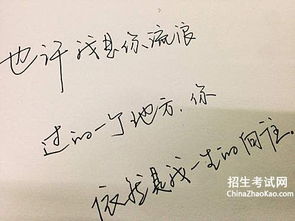 也许我是你流浪
过的一个地方，你
依然是我一生的向往
招生考试网
ChinaZhaoKao.com